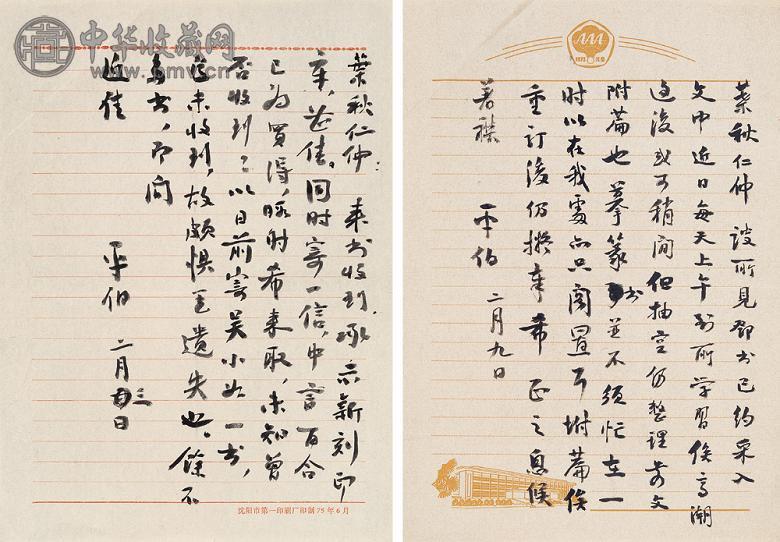 中华收藏网
葉秋仁仲：来书收到，承示新刻印
章，甚佳。同时寄一信，中言百合
已为買得，暇时希来取，未知曾
否收到？以日前寄吴小如一书，
迄未收到，故颇惧至遗失也。馀不
多书，即问
近佳
平伯 二月廿三日
沈阳市第一印刷厂印制 75年6月
AAA
葉秋仁仲 所見鄙书已约采入
文中近日每天上午到所学習俟高潮
过後或可稍闲但抽空仍整理前文
附篇也摹篆书並不须忙在一
时以在我處亦只阁置耳坿篇俟
重订後仍擬奉希正之 候
著祺
平伯 二月九日